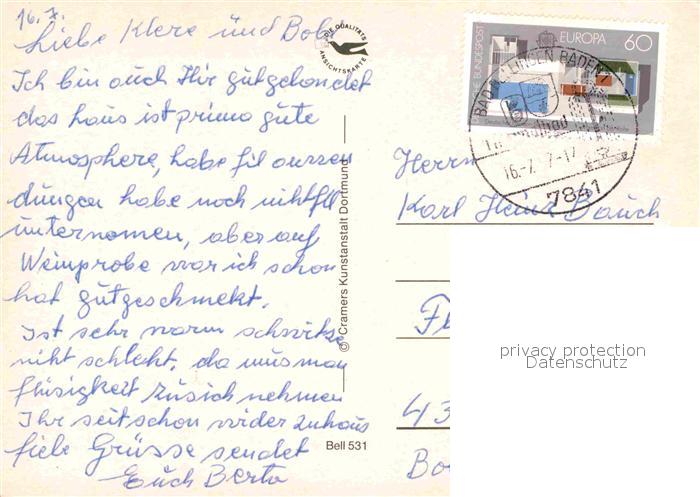 16.7.
Liebe Klere und Bob
Ich bin auch Hir gutgelondet
das haus ist primo gute
Atmosphere, habe fil
dungen habe noch nihtfil
unternomen, aber auf
Weinprobe war ich schon
hat gutgeschmekt.
Ist sehr warm
niht schleht, da musman
flüsigkeit zusich nehmen
Ihr seit schon wider zuhaus
fiele Grüsse sendet
Euch Berta
DIE QUALITÄTS
ANSICHTSKARTE
© Cramers Kunstanstalt Dortmund
Bell 531
DEUTSCHE BUNDESPOST
EUROPA 60
BAD BELLINGEN BADEN
Thermalbad
16.-7. 7-17
7841
Herrn
Karl Heinz Bauch
43
Bo
privacy protection
Datenschutz